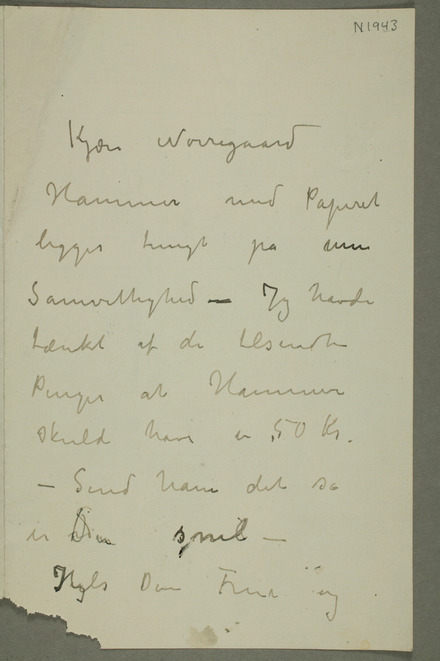 N 1943
Kjære Nørregaard
Hammer med Papiret
ligger tungt på min
Samvittighed — Jeg havde
tænkt af de tilsendte
Penger at Hammer
skuld have en 50 Kr.
— Send ham det så
er Du snil —
Hils Din Frue og